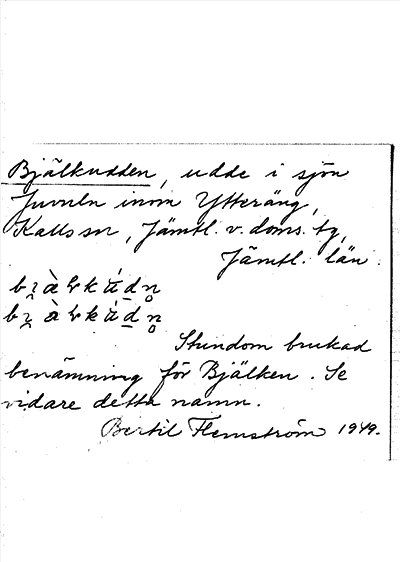 Bjälkudden, udde i sjön
Juveln inom Ytteräng,
Kalls sn, Jämtl. v. doms. tg,
Jämtl. län.
Stundom brukad
benämning för Bjälken. Se
vidare detta namn.
Bertil Flemström 1949.